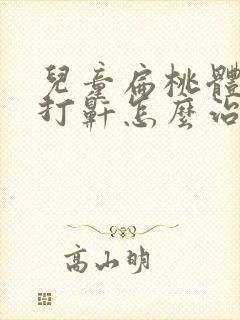 兒童扁桃體
打鼾怎麼治
高山明